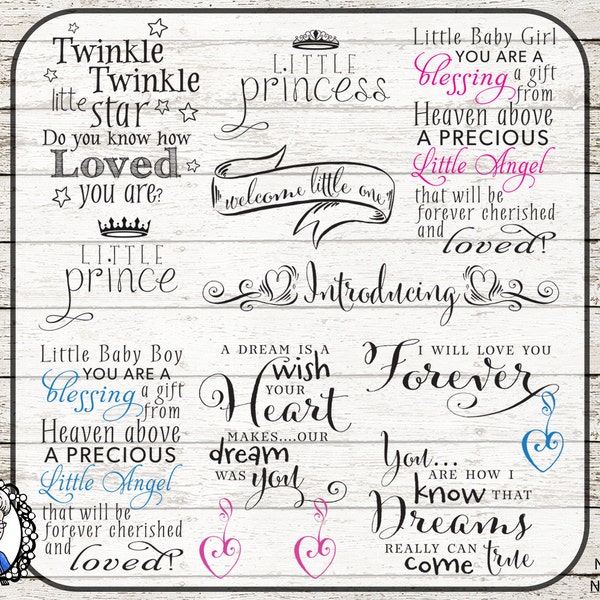 Twinkle
Twinkle
little
star
Do you know how
Loved
you are?
LITTLE
princess
Little Baby Girl
YOU ARE A
blessing a gift
from
Heaven above
A PRECIOUS
Little Angel
that will be
forever cherished
and loved!
welcome little one
LITTLE
prince
Introducing
Little Baby Boy
YOU ARE A
blessing a gift
from
Heaven above
A PRECIOUS
Little Angel
that will be
forever cherished
and loved!
A DREAM IS A
wish
YOUR
Heart
MAKES....OUR
dream
WAS you
I WILL LOVE YOU
Forever
You...
ARE HOW I
know THAT
Dreams
REALLY CAN
come true